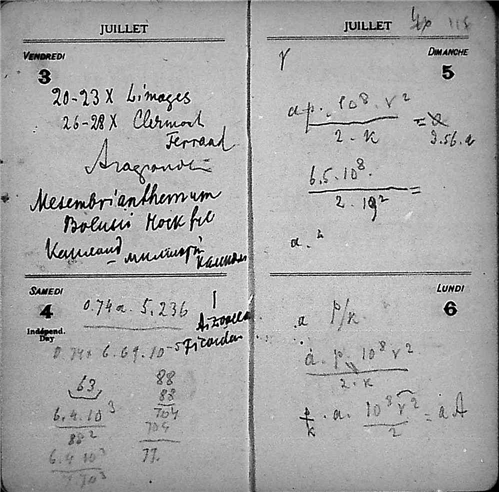 JUILLET
VENDREDI
3
20-23 X Limages
26-28 X Clermont
Ferrand
Mesembrianthemum
Bolusii Hook fil
SAMEDI
4
Indépend.
Day
0.74a. 5.236
Aizoaceae
Ficoideae
0.74 x 6.69.10⁻⁵
63
6.4.10³
88²
6.4 10³
88
88
704
704
77.
JUILLET
DIMANCHE
5
γ
a p. 10⁸. r² =
2. k
3.56. a
6.5. 10⁸. =
2. 10²
a. ²
LUNDI
6
a P/k
a. p. 10⁸ r²
2. k
p/k . a. 10⁸ r² = a A
2